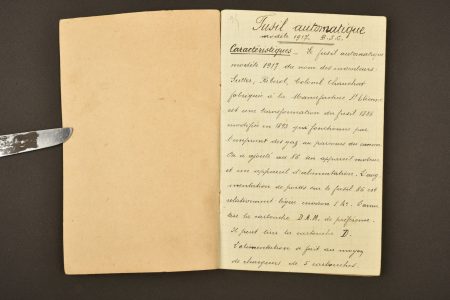 Fusil automatique
modèle 1917. R.S.C.
Caractéristiques - Le fusil automatique
modèle 1917 du nom des inventeurs
Sutter, Ribeyrol, Colonel Chauchat
fabriqué à la Manufacture St Etienne
est une transformation du fusil 1886
modifié en 1893 qui fonctionne par
l'emprunt des gaz au parcours du canon
On a ajouté au 86 un appareil moteur
et un appareil d'alimentation. L'aug
mentation de poids sur le fusil 86 est
relativement légère environ 1 kg.
tire la cartouche D.A.M. de préférence.
Il peut tirer la cartouche D.
L'alimentation se fait au moyen
de chargeurs de 5 cartouches.